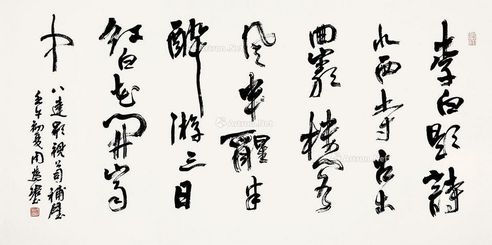 李白題詩
水西寺古木
回巖樓閣
風半醒半
醉游三日
紅白花開山雨
中
八達影視公司補壁
壬午初夏周慧珺